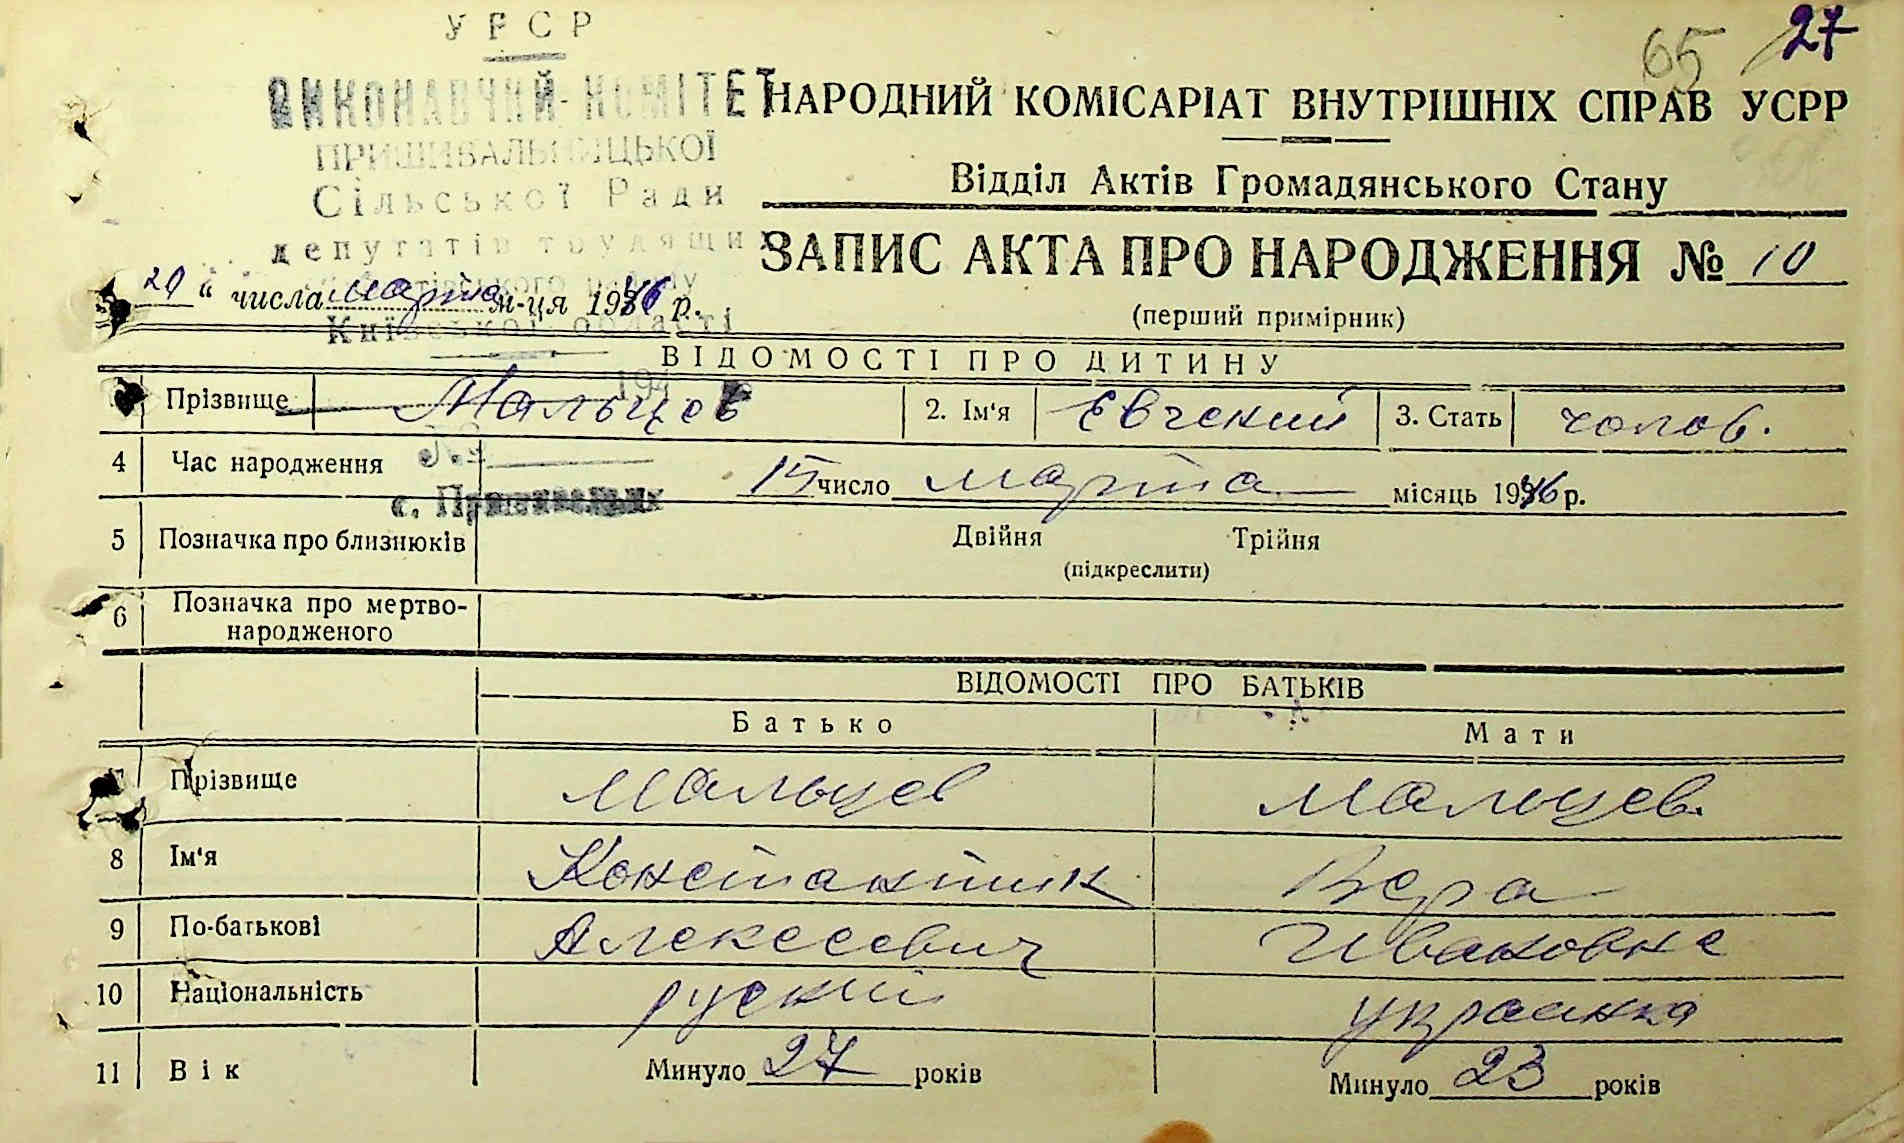 УРСР
65 27
ВИКОНАВЧИЙ КОМІТЕТ
НАРОДНИЙ КОМІСАРІАТ ВНУТРІШНІХ СПРАВ УСРР
ПРИШИВАЛЬНИЦЬКОЇ
Сільської Ради
Відділ Актів Громадянського Стану
депутатів трудящих
ЗАПИС АКТА ПРО НАРОДЖЕННЯ № 10
району
20 " числа марта м-ця 1946 р.
(перший примірник)
Київської області
ВІДОМОСТІ ПРО ДИТИНУ
Прізвище Мальцев 2. Ім'я Евгений 3. Стать чолов.
4 Час народження 15 число марта місяць 1946 р.
с.
5 Позначка про близнюків Двійня Трійня
(підкреслити)
6 Позначка про мертво-
народженого
ВІДОМОСТІ ПРО БАТЬКІВ
Батько Мати
7 Прізвище Мальцев Мальцев.
8 Ім'я Константин Вера
9 По-батькові Алексеевич Ивановна
10 Національність руский украинка
11 Вік Минуло 27 років Минуло 23 років